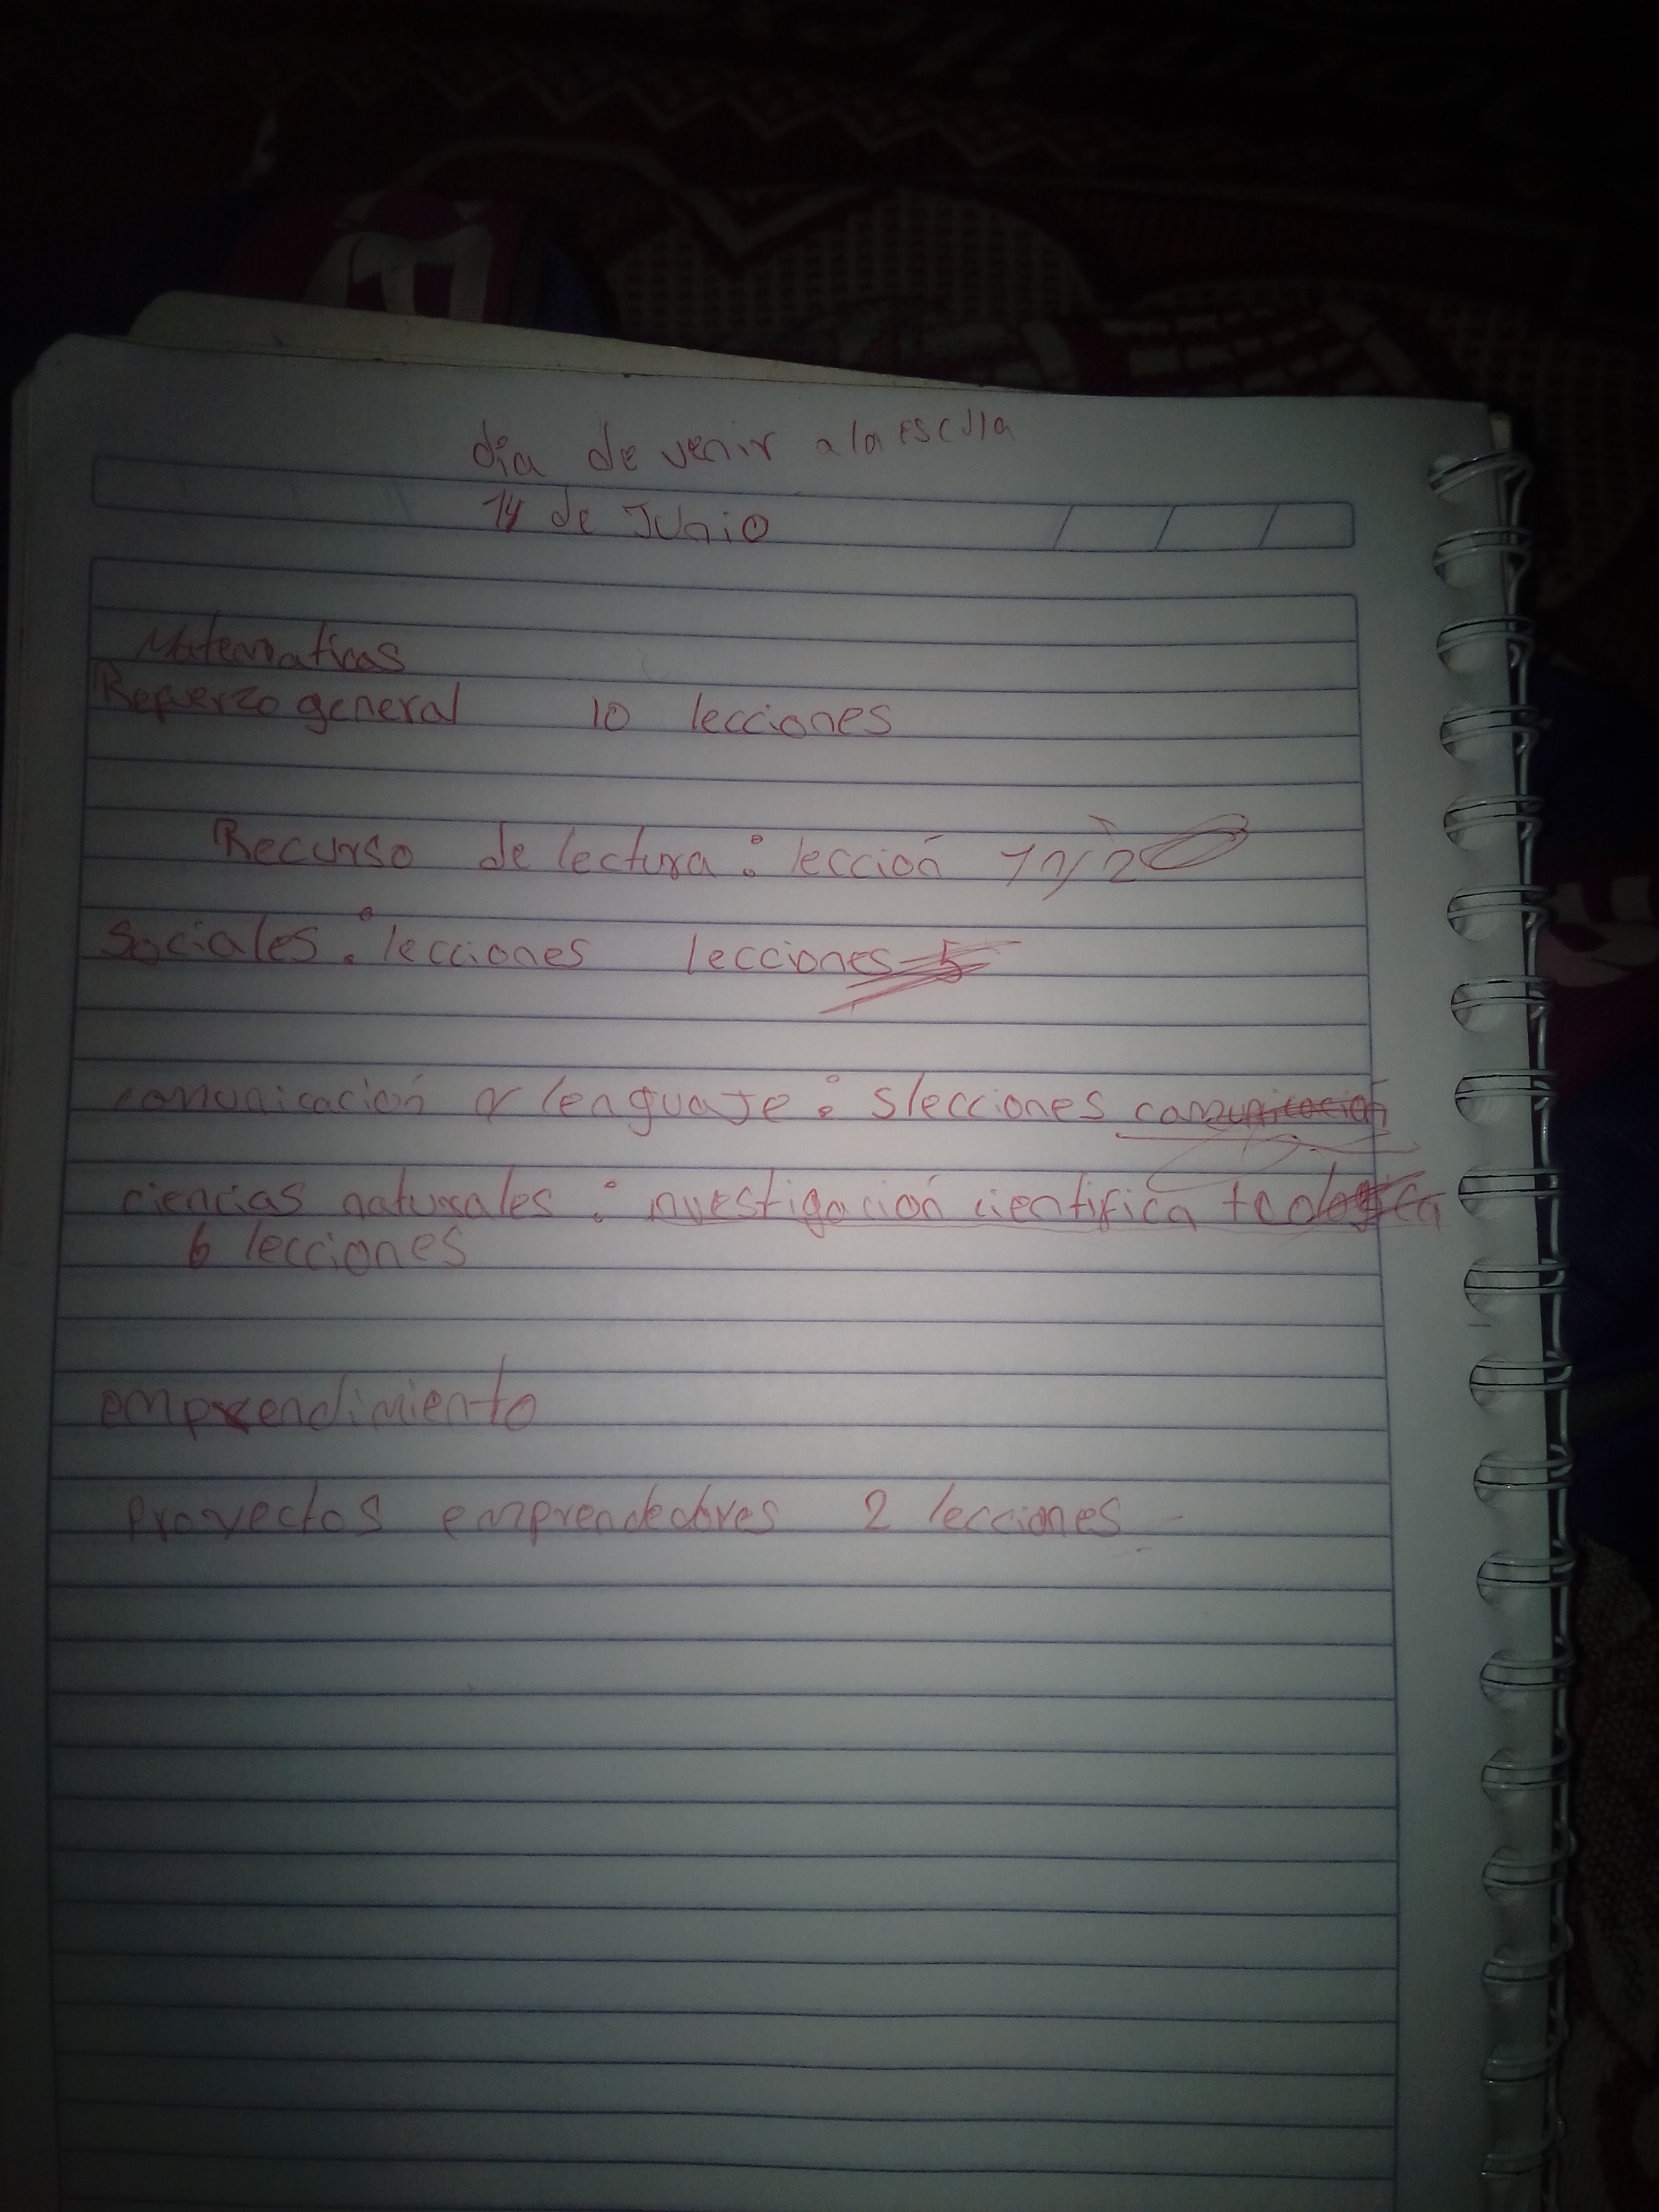 dia de venir a la escula
14 de Junio
Matematicas
Refuerzo general 10 lecciones
Recurso de lectura: lección 1 y 2
Sociales: lecciones lecciones 5
comunicación y lenguaje: 5 lecciones comunicación
ciencias naturales: investigación cientifica
6 lecciones
emprendimiento
Proyectos emprendedores 2 lecciones